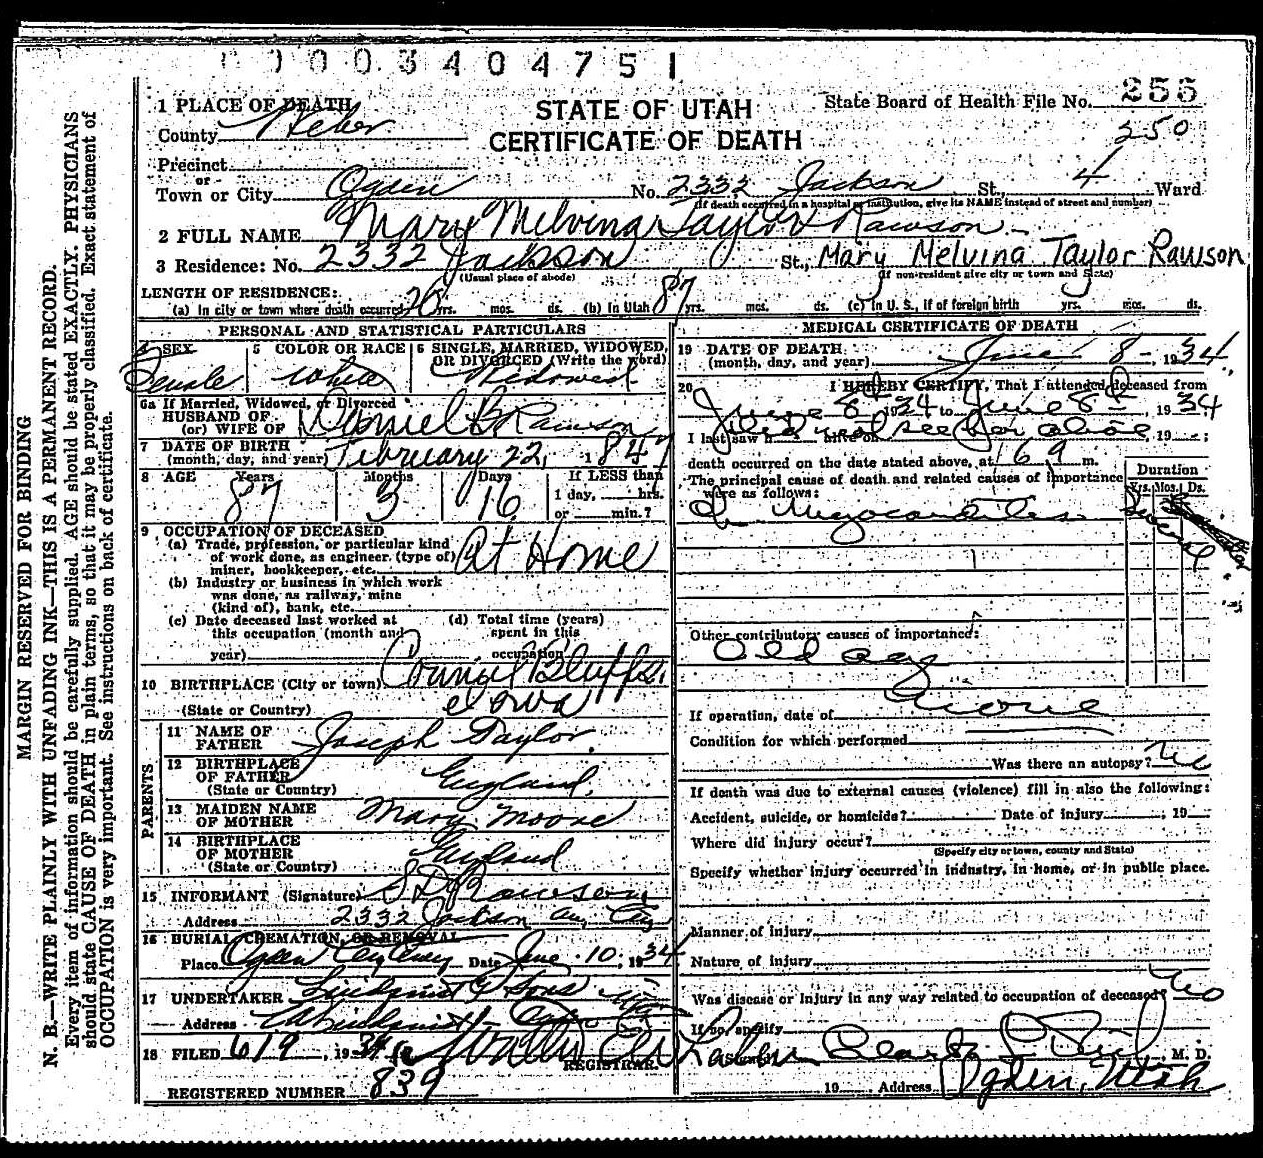 0003404751
255
1 PLACE OF DEATH
STATE OF UTAH
State Board of Health File No.
County Weber
CERTIFICATE OF DEATH
250
Precinct
or
Town or City Ogden No. 2332 Jackson St., 4 Ward
(If death occurred in a hospital or institution, give its NAME instead of street and number)
2 FULL NAME Mary Melvina Taylor Rawson
3 Residence: No. 2332 Jackson St., Mary Melvina Taylor Rawson
(Usual place of abode) (If non-resident give city or town and State)
LENGTH OF RESIDENCE:
(a) In city or town where death occurred 20 yrs. mos. ds. (b) In Utah 87 yrs. mos. ds. (c) In U. S., if of foreign birth yrs. mos. ds.
PERSONAL AND STATISTICAL PARTICULARS
4 SEX 5 COLOR OR RACE 6 SINGLE, MARRIED, WIDOWED,
OR DIVORCED (Write the word)
Female White Widowed
6a If Married, Widowed, or Divorced
HUSBAND OF
(or) WIFE OF Daniel B Rawson
7 DATE OF BIRTH
(month, day, and year) February 22, 1847
8 AGE Years Months Days If LESS than
1 day, hrs.
or min.?
87 3 16
9 OCCUPATION OF DECEASED
(a) Trade, profession, or particular kind
of work done, as engineer, (type of)
miner, bookkeeper, etc. At Home
(b) Industry or business in which work
was done, as railway, mine
(kind of), bank, etc.
(c) Date deceased last worked at
this occupation (month and
year)
(d) Total time (years)
spent in this
occupation
10 BIRTHPLACE (City or town) Council Bluffs,
(State or Country) Iowa
PARENTS
11 NAME OF
FATHER Joseph Taylor
12 BIRTHPLACE
OF FATHER
(State or Country) England
13 MAIDEN NAME
OF MOTHER Mary Moore
14 BIRTHPLACE
OF MOTHER
(State or Country) England
15 INFORMANT (Signature) S D Rawson
Address 2332 Jackson Ave, City
16 BURIAL, CREMATION, OR REMOVAL
Place Ogden Cemetery Date June 10, 1934
17 UNDERTAKER Lindquist & Sons
Address
18 FILED 6/9, 1934
REGISTRAR.
REGISTERED NUMBER 839
MEDICAL CERTIFICATE OF DEATH
19 DATE OF DEATH
(month, day, and year) June 8 - 1934
20 I HEREBY CERTIFY, That I attended deceased from
June 8th 1934 to June 8th, 1934
I last saw h alive on did not see her alive, 19 ;
death occurred on the date stated above, at m.
The principal cause of death and related causes of importance
were as follows:
Duration
Yrs. Mos. Ds.
Ch Myocarditis Several
Other contributory causes of importance:
Old age
If operation, date of none
Condition for which performed
Was there an autopsy? No
If death was due to external causes (violence) fill in also the following:
Accident, suicide, or homicide? Date of injury , 19
Where did injury occur?
(Specify city or town, county and State)
Specify whether injury occurred in industry, in home, or in public place.
Manner of injury
Nature of injury
Was disease or injury in any way related to occupation of deceased? No
If so, specify
, M. D.
19 Address Ogden, Utah
MARGIN RESERVED FOR BINDING
N. B.—WRITE PLAINLY WITH UNFADING INK—THIS IS A PERMANENT RECORD.
Every item of information should be carefully supplied. AGE should be stated EXACTLY. PHYSICIANS
should state CAUSE OF DEATH in plain terms, so that it may be properly classified. Exact statement of
OCCUPATION is very important. See instructions on back of certificate.